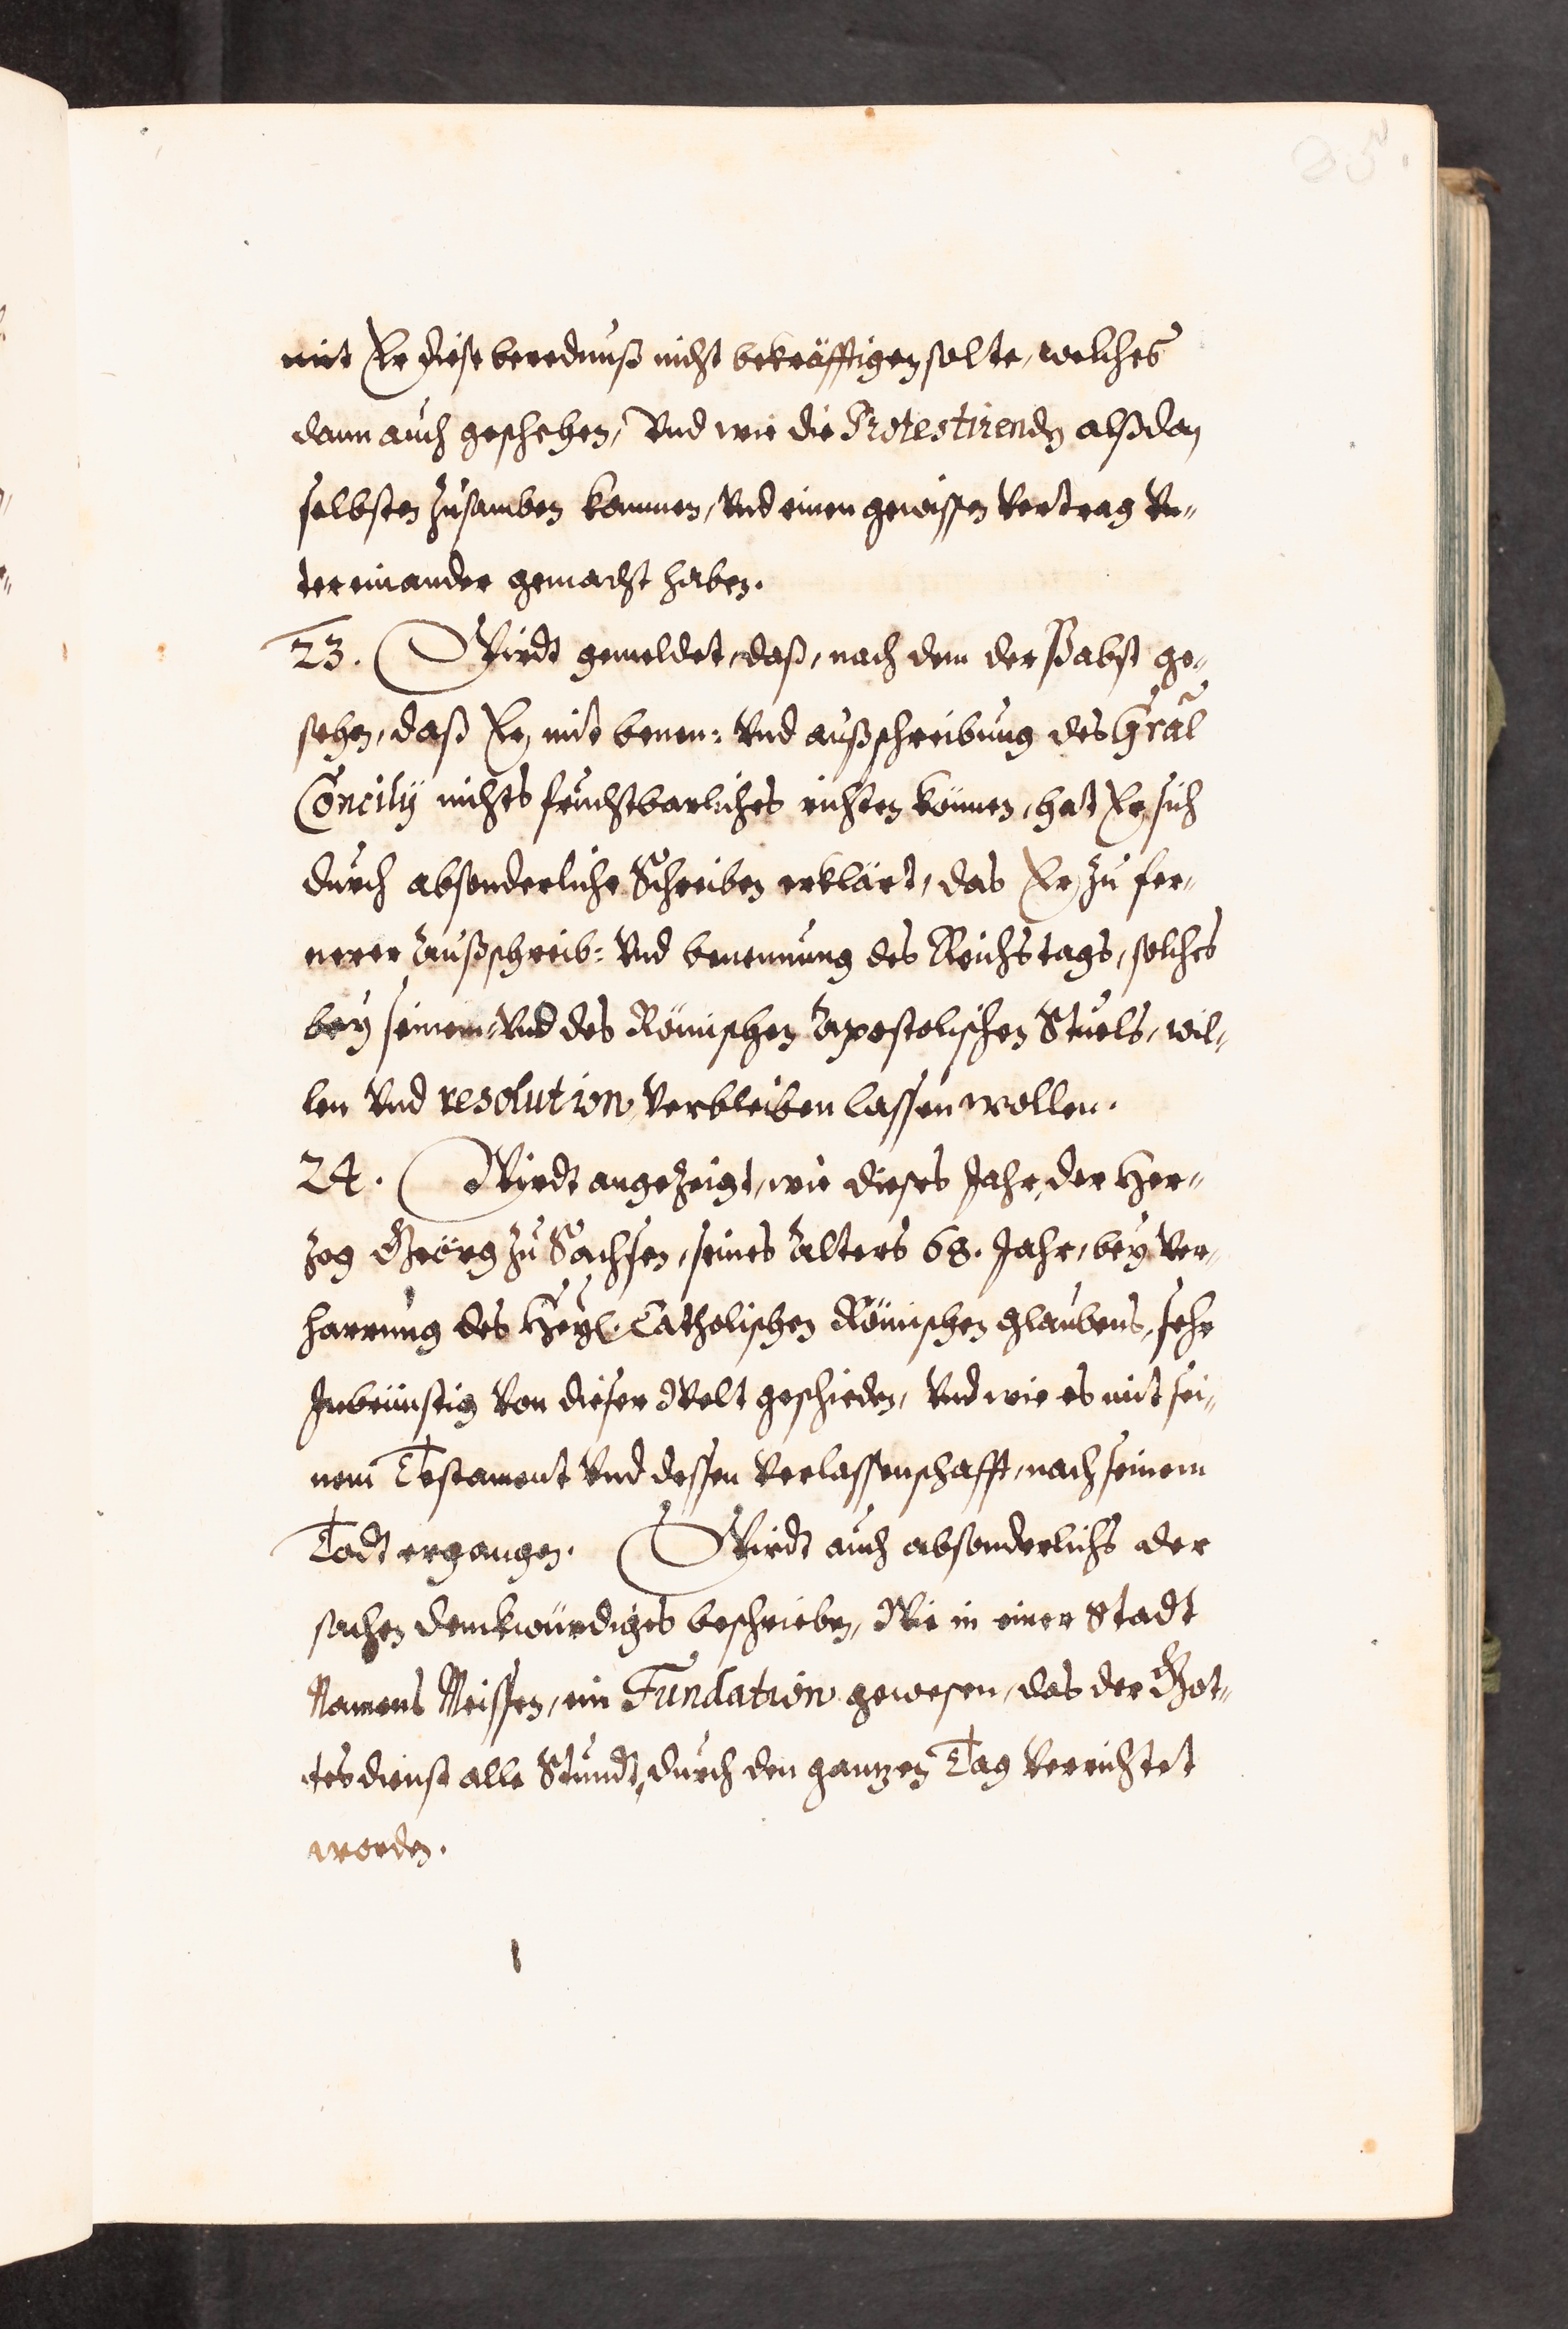 25.
mit Er diese berednuß nicht bekräfftigen solte, welches
dann auch geschehen, Vnd wie die Protestirendn alßdan
selbsten Zusamben kommen, Vnd einen gewissen Vertrag Vn„
tereinander gemacht haben.
23. Wirdt gemeldet, daß, nach dem der Pabst ge„
sehen, daß Er mit benen: Vnd außschreibung des Gral
Concilij nichts fruchtbarliches richten können, hat Er sich
durch absonderliche Schreiben erklärt, das Er zu fer„
nerer Außschreib: Vnd benennung des Reichstags, solches
bey seinem: Vnd des Römischen Apostolischen Stuels, wil„
len Vnd resolution, Verbleiben lassen wollen.
24. Wirdt angezeigt, wie dieses Jahr, der Her„
zog Georg zu Sachsen, seines Alters 68. Jahr, bey Ver„
harrung des Heyl. Catholischen Römischen glaubens, sehr
Inbrünstig Von dieser Welt geschieden, Vnd wie es mit sei„
nem Testament Vnd dessen Verlassenschafft, nach seinem
Todt ergangen. Wirdt auch absonderlichs der
sachen denckwürdiges beschrieben, Wie in einer Stadt
Namens Meissen, ein Fundation gewesen, das der Got„
tesdienst alle Stundt, durch den gantzen Tag Verrichtet
worden.